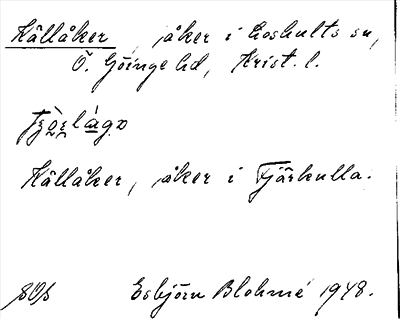 Källåker, åker i Loshults sn,
Ö. Göinge hd, Krist. l.
Källåker, åker i Tjärkulla.
Esbjörn Blohmé 1948.